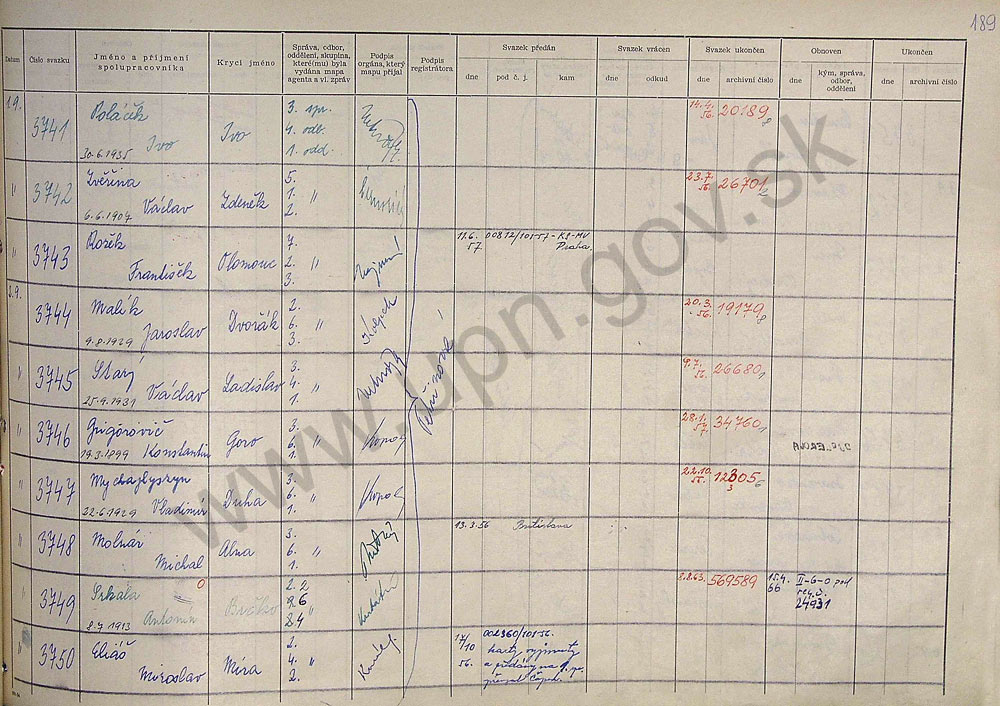 189
Datum
Číslo svazku
Jméno a příjmení
spolupracovníka
Krycí jméno
Správa, odbor,
oddělení, skupina,
které(mu) byla
vydána mapa
agenta a vl. zpráv
Podpis
orgána, který
mapu přijal
Podpis
registrátora
Svazek předán
dne
pod č. j.
kam
Svazek vrácen
dne
odkud
Svazek ukončen
dne
archivní číslo
Obnoven
dne
kým, správa,
odbor,
oddělení
Ukončen
dne
archivní číslo
1.9.
3741
Poláček
Ivo
30.6.1935
Ivo
3. spr.
4. odb.
1. odd.
14.4.
56.
20189
8
"
3742
Zvěřina
Václav
6.6.1907
Zdeněk
5.
1. "
2.
23.7.
56.
26701
2
"
3743
Rozěk
František
Olomouc
7.
2. "
3.
11.6.
57
00812/101-57-KS-MV
Praha.
2.9.
3744
Malík
Jaroslav
9.8.1929
Dvořák
2.
6. "
3.
20.3.
56.
19179
8
"
3745
Starý
Václav
25.9.1931
Ladislav
3.
4. "
1.
9.7.
56.
26680
1
"
3746
Grigorovič
Konstantin
19.3.1899
Goro
3.
6. "
1.
Kopol
28.1.
57.
34760
1
"
3747
Mychajlyszyn
Vladimír
22.6.1929
Duha
3.
6. "
1.
Kopol
22.10.
55.
12305
6
3
"
3748
Molnár
Michal
Alna
3.
6. "
1.
13.3.56
Bratislava
"
3749
Srkala
Antonín
8.7.1913
0
2.2
6
84
"
8.8.63.
569589
15.4.
66
II-6-0 pod
reg.č.
24931
"
3750
Eliáš
Miroslav
Míra
2.
4. "
2.
17/10
56.
002360/101-56.
karty vyjmuty
a předány na
www.upn.gov.sk